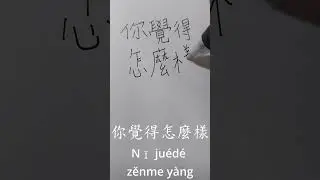 你覺得
怎麼樣
你覺得怎麼樣
Nɪ juédé
zěnme yàng